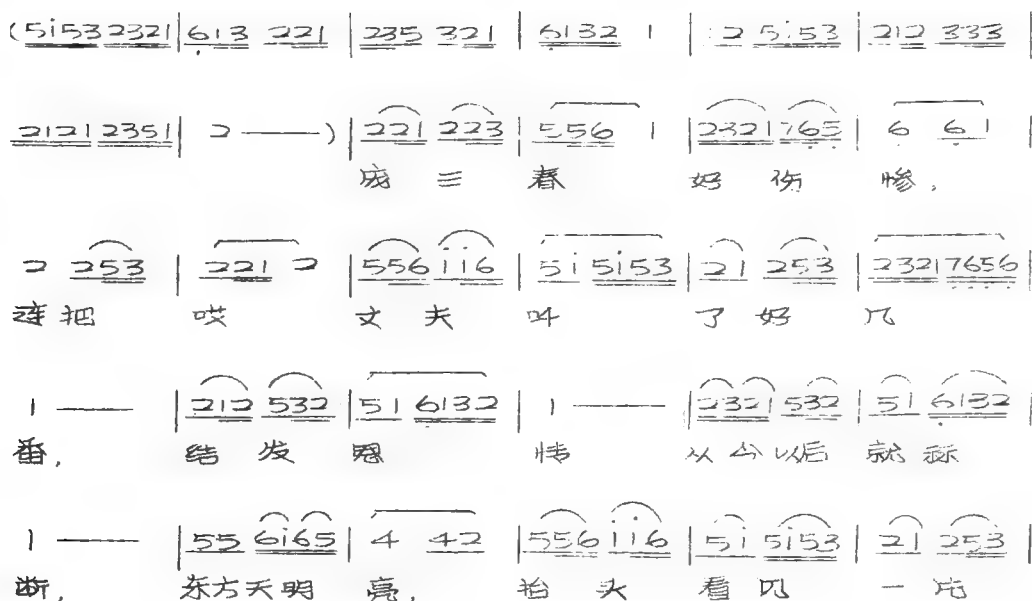 (5i53 2321 | 613 221 | 235 321 | 6132 1 | 12 5i53 | 212 333 |
2121 2351 | 2 —— ) | 221 223 | 556 1 | 2321 765 | 6 61 |
庞 三 春 好 伤 惨,
2 253 | 221 2 | 556 ii6 | 5i 5i53 | 21 253 | 2321 7656 |
连把 哎 丈 夫 叫 了 好 几
1 —— | 212 532 | 51 6132 | 1 —— | 2321 532 | 51 6132 |
番, 结 发 恩 情 从今以后 就
1 —— | 55 6i65 | 4 42 | 556 ii6 | 5i 5i53 | 21 253 |
断, 东方天明 亮, 抬 头 看见 一